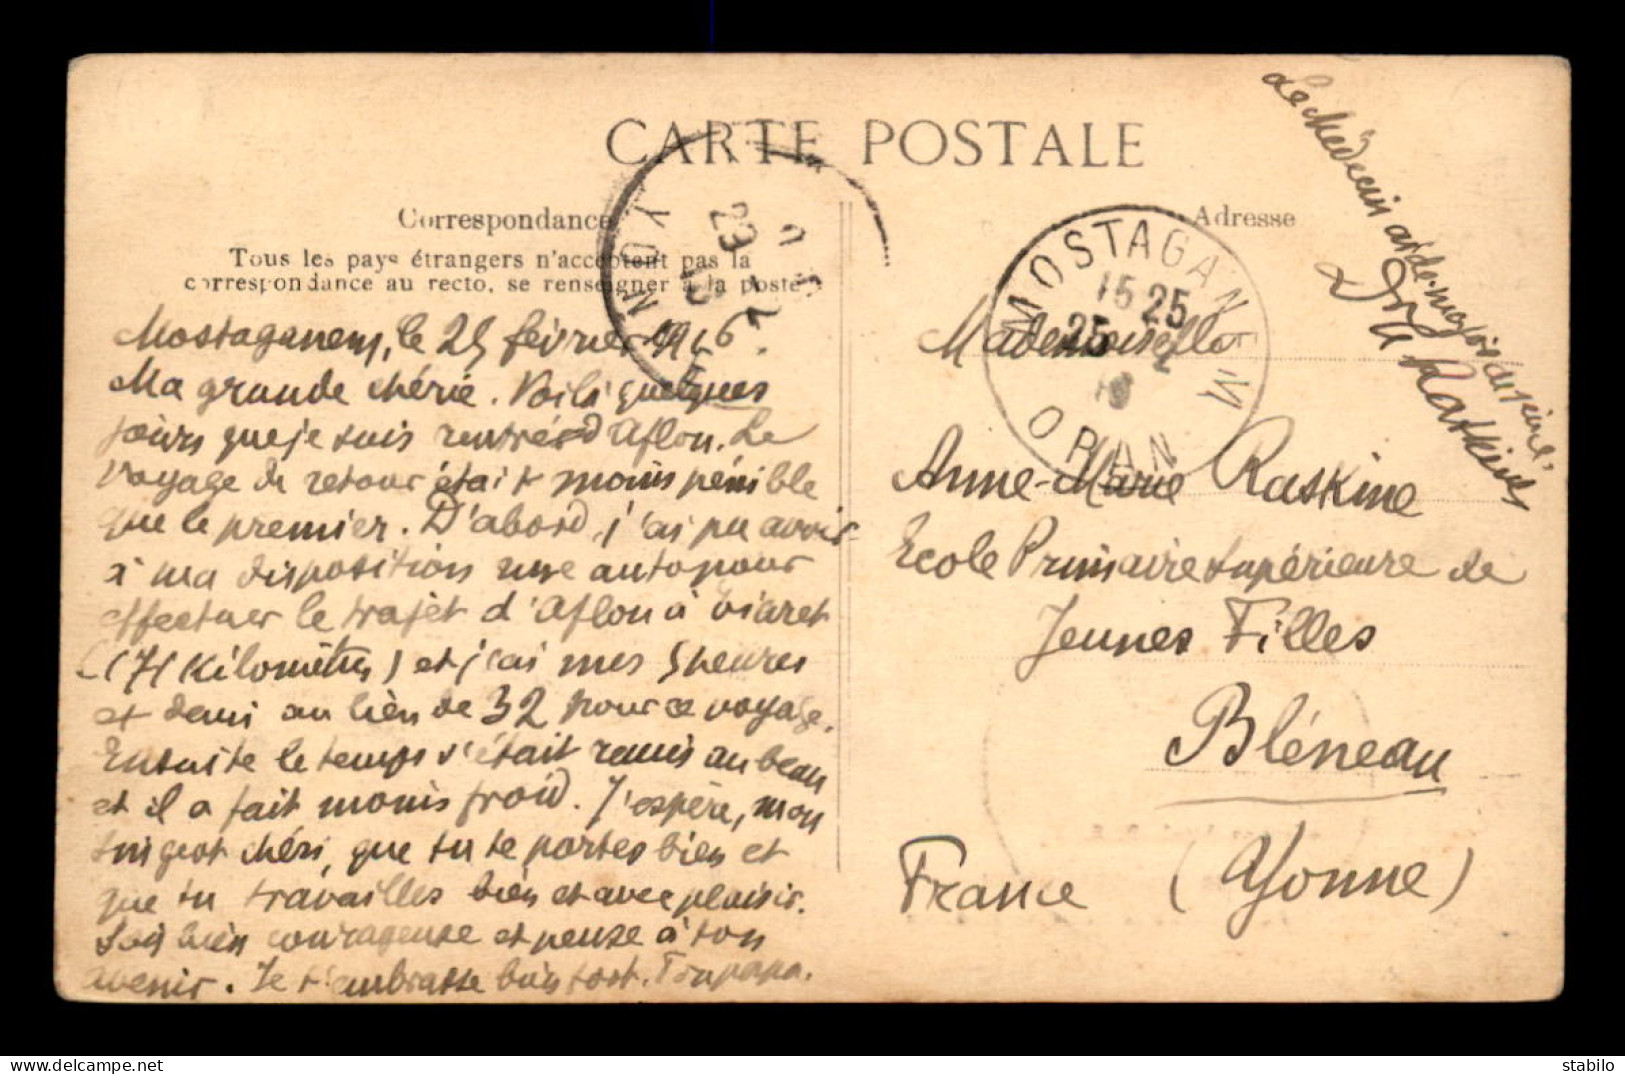 CARTE POSTALE
Correspondance
Tous les pays étrangers n'acceptent pas la
correspondance au recto, se renseigner à la poste
Mostaganem, le 25 février 1916.
Ma grande chérie. Voilà quelques
jours que je suis rentré d'Aflou. Le
voyage de retour était moins pénible
que le premier. D'abord, j'ai pu avoir
à ma disposition une auto pour
effectuer le trajet d'Aflou à Tiaret
(171 kilomètres) et j'ai mis 5 heures
et demi au lieu de 32 pour ce voyage.
Ensuite le temps s'était remis au beau
et il a fait moins froid. J'espère, mon
chéri, que tu te portes bien et
que tu travailles bien et avec plaisir.
Sois bien courageuse et pense à ton
avenir. Je t'embrasse bien fort. Ton papa.
YONNE
29
2
MOSTAGANEM
15 25
25 2
ORAN
Adresse
Le Médecin aide-major
Dr Raskine
Mademoiselle
Anne-Marie Raskine
Ecole Primaire Supérieure de
Jeunes Filles
Bléneau
(Yonne)
France
delcampe.net
stabilo